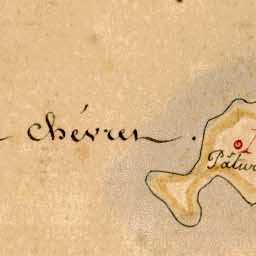 Chévres.
Pâtur